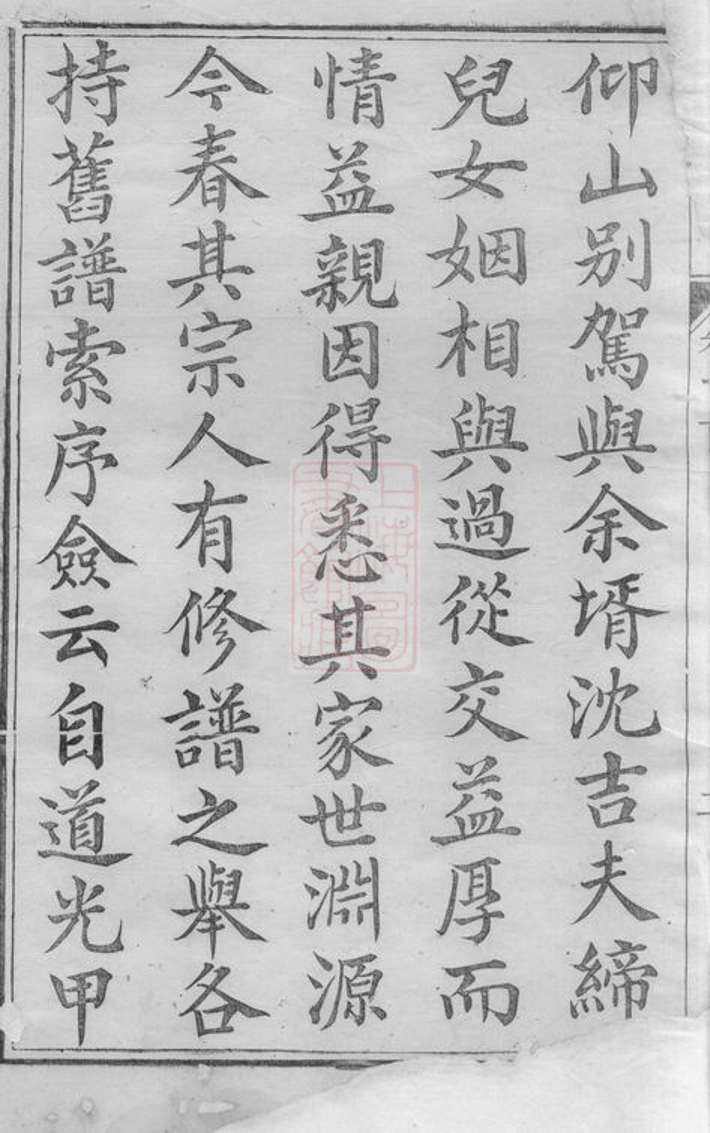 仰山别駕與余壻沈吉夫締
兒女姻相與過從交益厚而
情益親因得悉其家世淵源
今春其宗人有修譜之舉各
持舊譜索序僉云自道光甲